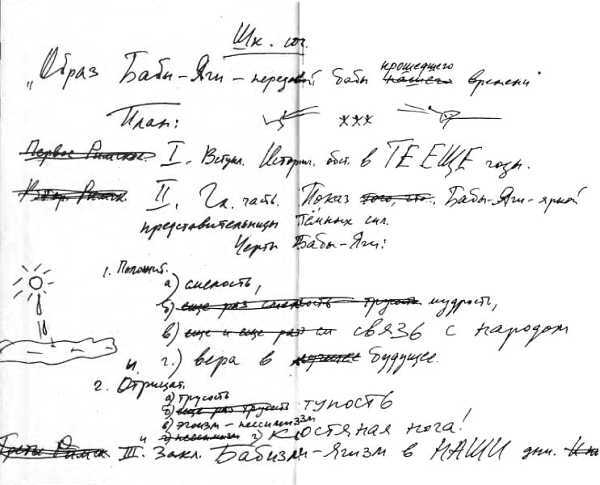 Шк. соч.
„Образ Бабы-Яги – передовой бабы нашего прошедшего времени“
План: xxx
Первое Римское. I. Вступл. Историч. обст. в ТЕ ЕЩЕ годы.
Втор. Римск. II. Гл. часть. Показ того, что Бабы-Яги – яркой
представительницы тёмных сил.
Черты Бабы-Яги:
1. Положит.
а) смелость,
б) еще раз смелость трусость мудрость,
в) еще и еще раз см связь с народом
и г.) вера в лучшее будущее.
2. Отрицат.
а) трусость
б) еще раз трусость тупость
в) эгоизм-пессимиззм
и г) Костяная нога!
Треть. Римск. III. Закл. Бабизм-ягизм в НАШИ дни.